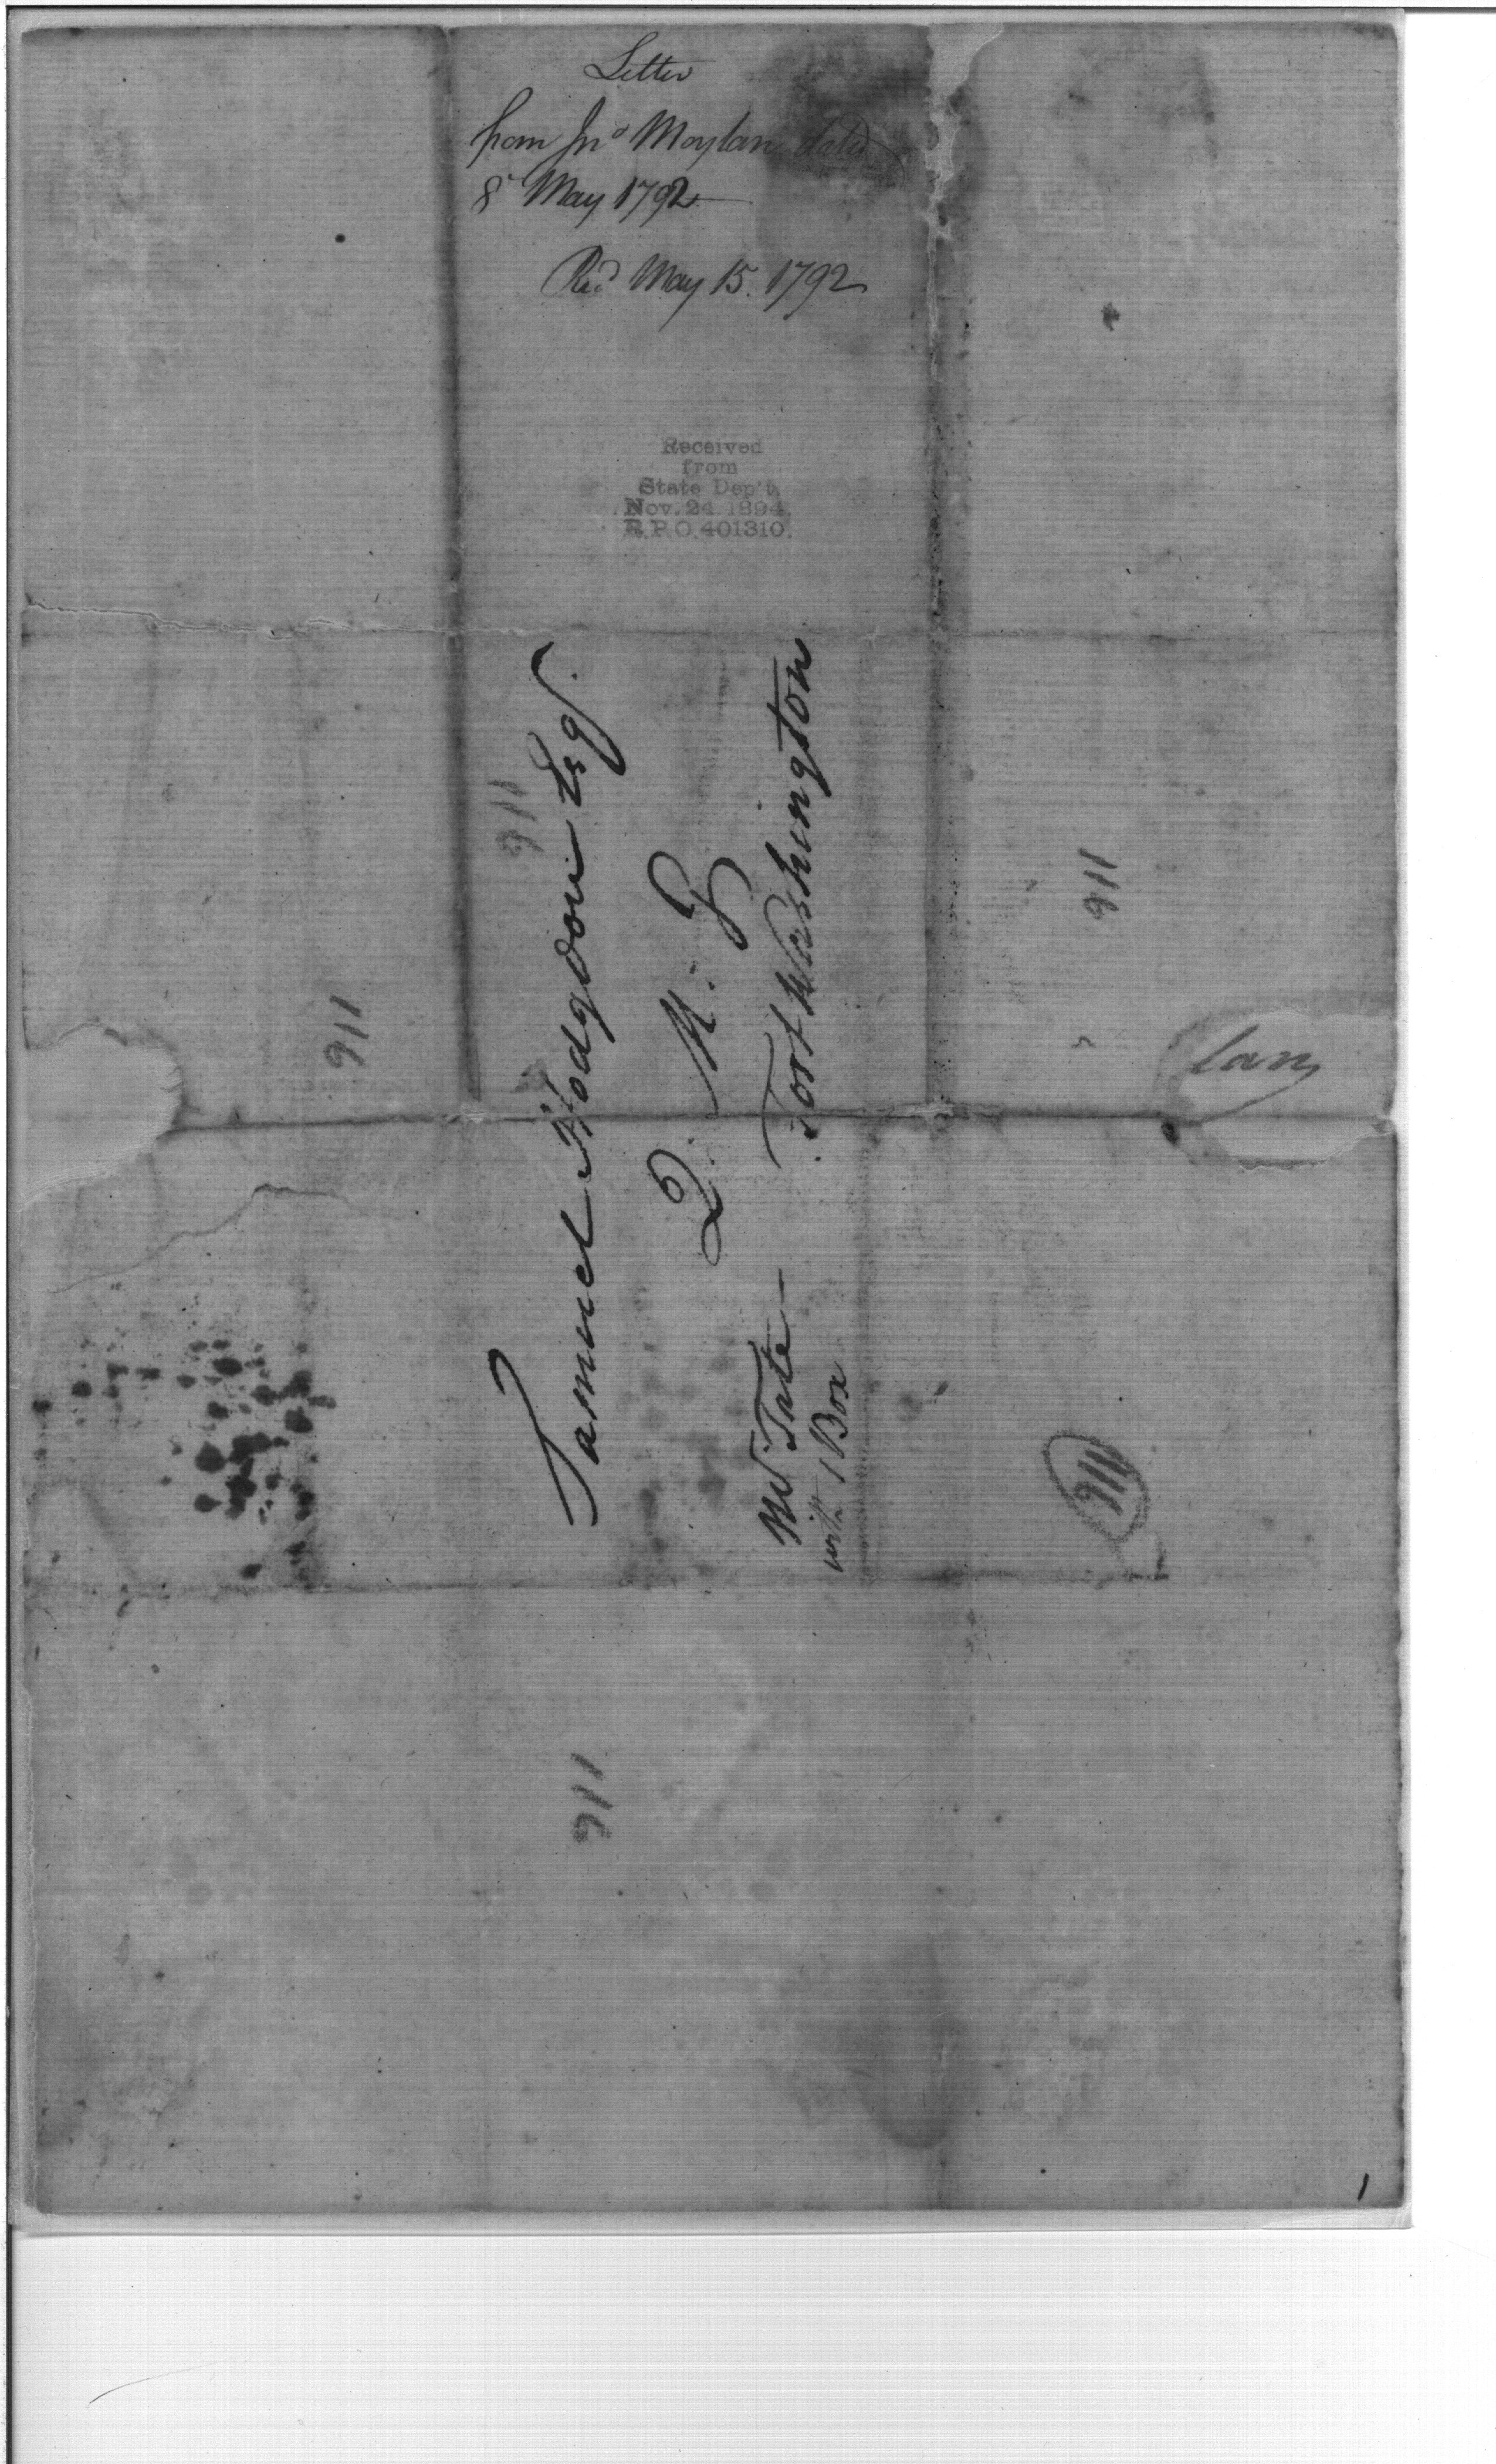 Letter
from Jno Moylan dated
8th May 1792
Recd May 15. 1792
Received
from
State Dep't.
Nov. 24. 1894.
R.P.O. 401310.
Samuel Hodgdon Esqr.
Q. M. G
Fort Washington
Mr Tate
with 1 Box
911
911
911
911
911
lan
1